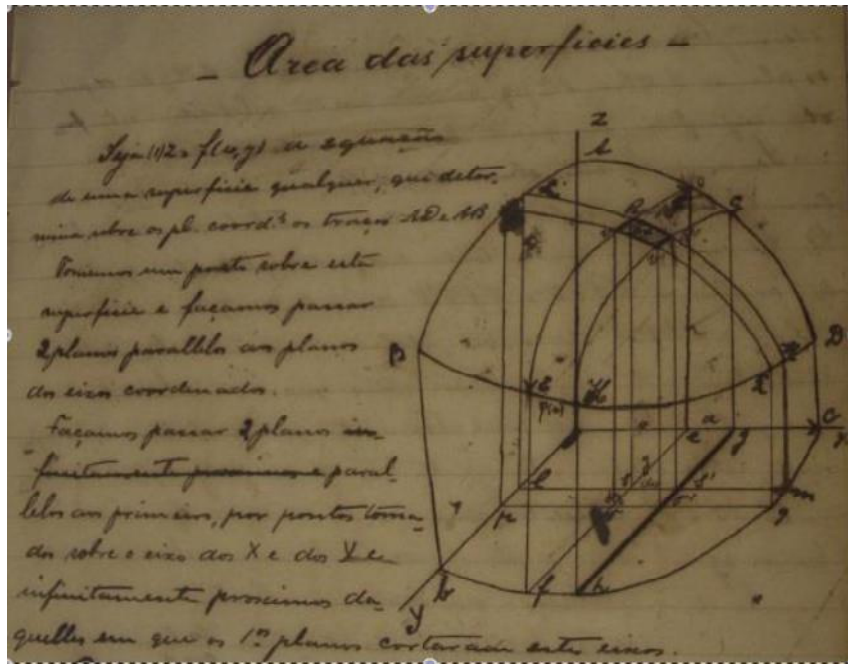 — Area das superficies —
Seja (1) Z = f(x,y) a equação
de uma superficie qualquer, que deter-
mina sobre os pl. coord.s os traços AD e AB
Tomemos um ponto sobre esta
superficie e façamos passar
2 planos parallelos aos planos
dos eixos coordenados.
Façamos passar 2 planos in-
finitamente proximos e paral-
lelos aos primeiros, por pontos toma-
dos sobre o eixo dos X e dos Y e
infinitamente proximos da-
quelles em que os 1os planos cortaram estes eixos.
Z
A
C
B
D
E
H
F(x)
a
e
g
C
l
m
n
q
b
f
h
y